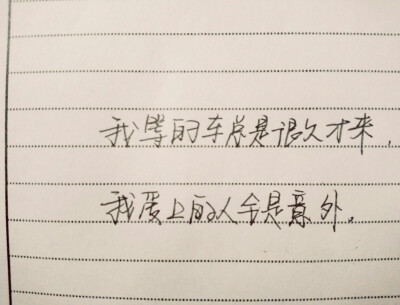 我等的车总是很久才来,
我爱上的人全是意外。